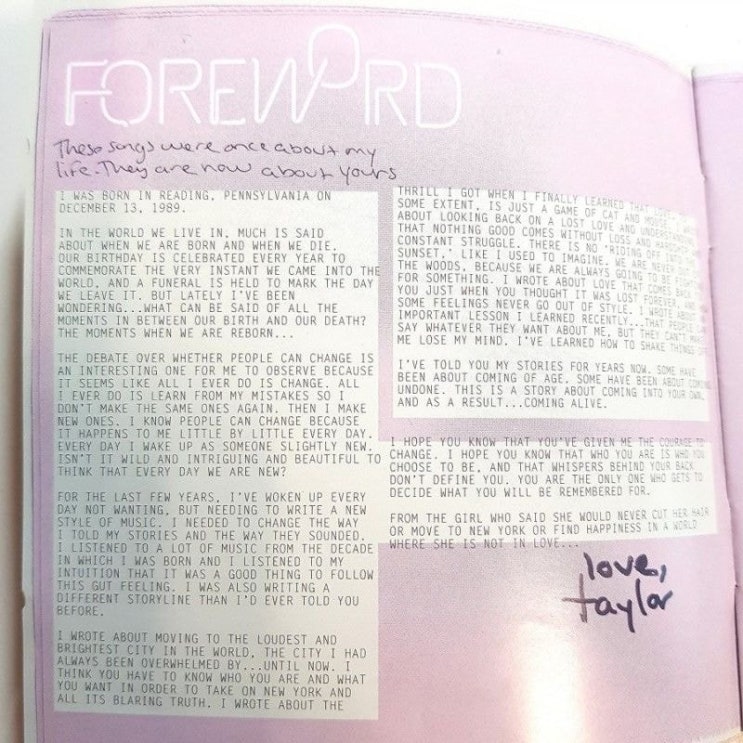 FOREWORD
These songs were once about my
life. They are now about yours
I WAS BORN IN READING, PENNSYLVANIA ON
DECEMBER 13, 1989.
IN THE WORLD WE LIVE IN, MUCH IS SAID
ABOUT WHEN WE ARE BORN AND WHEN WE DIE.
OUR BIRTHDAY IS CELEBRATED EVERY YEAR TO
COMMEMORATE THE VERY INSTANT WE CAME INTO THE
WORLD, AND A FUNERAL IS HELD TO MARK THE DAY
WE LEAVE IT. BUT LATELY I'VE BEEN
WONDERING...WHAT CAN BE SAID OF ALL THE
MOMENTS IN BETWEEN OUR BIRTH AND OUR DEATH?
THE MOMENTS WHEN WE ARE REBORN...
THE DEBATE OVER WHETHER PEOPLE CAN CHANGE IS
AN INTERESTING ONE FOR ME TO OBSERVE BECAUSE
IT SEEMS LIKE ALL I EVER DO IS CHANGE. ALL
I EVER DO IS LEARN FROM MY MISTAKES SO I
DON'T MAKE THE SAME ONES AGAIN. THEN I MAKE
NEW ONES. I KNOW PEOPLE CAN CHANGE BECAUSE
IT HAPPENS TO ME LITTLE BY LITTLE EVERY DAY.
EVERY DAY I WAKE UP AS SOMEONE SLIGHTLY NEW.
ISN'T IT WILD AND INTRIGUING AND BEAUTIFUL TO
THINK THAT EVERY DAY WE ARE NEW?
FOR THE LAST FEW YEARS, I'VE WOKEN UP EVERY
DAY NOT WANTING, BUT NEEDING TO WRITE A NEW
STYLE OF MUSIC. I NEEDED TO CHANGE THE WAY
I TOLD MY STORIES AND THE WAY THEY SOUNDED.
I LISTENED TO A LOT OF MUSIC FROM THE DECADE
IN WHICH I WAS BORN AND I LISTENED TO MY
INTUITION THAT IT WAS A GOOD THING TO FOLLOW
THIS GUT FEELING. I WAS ALSO WRITING A
DIFFERENT STORYLINE THAN I'D EVER TOLD YOU
BEFORE.
I WROTE ABOUT MOVING TO THE LOUDEST AND
BRIGHTEST CITY IN THE WORLD, THE CITY I HAD
ALWAYS BEEN OVERWHELMED BY...UNTIL NOW. I
THINK YOU HAVE TO KNOW WHO YOU ARE AND WHAT
YOU WANT IN ORDER TO TAKE ON NEW YORK AND
ALL ITS BLARING TRUTH. I WROTE ABOUT THE
THRILL I GOT WHEN I FINALLY LEARNED THAT
SOME EXTENT, IS JUST A GAME OF CAT AND MOUSE.
ABOUT LOOKING BACK ON A LOST LOVE AND
THAT NOTHING GOOD COMES WITHOUT LOSS AND
CONSTANT STRUGGLE. THERE IS NO "RIDING OFF
SUNSET," LIKE I USED TO IMAGINE. WE ARE NEVER
THE WOODS, BECAUSE WE ARE ALWAYS GOING TO BE
FOR SOMETHING. I WROTE ABOUT LOVE THAT COMES
YOU JUST WHEN YOU THOUGHT IT WAS LOST FOREVER,
SOME FEELINGS NEVER GO OUT OF STYLE. I WROTE
IMPORTANT LESSON I LEARNED RECENTLY...THAT PEOPLE
SAY WHATEVER THEY WANT ABOUT ME, BUT THEY CAN'T
ME LOSE MY MIND. I'VE LEARNED HOW TO SHAKE THINGS
I'VE TOLD YOU MY STORIES FOR YEARS NOW. SOME HAVE
BEEN ABOUT COMING OF AGE. SOME HAVE BEEN ABOUT COMING
UNDONE. THIS IS A STORY ABOUT COMING INTO YOUR OWN,
AND AS A RESULT...COMING ALIVE.
I HOPE YOU KNOW THAT YOU'VE GIVEN ME THE COURAGE TO
CHANGE. I HOPE YOU KNOW THAT WHO YOU ARE IS WHO YOU
CHOOSE TO BE, AND THAT WHISPERS BEHIND YOUR BACK
DON'T DEFINE YOU. YOU ARE THE ONLY ONE WHO GETS TO
DECIDE WHAT YOU WILL BE REMEMBERED FOR.
FROM THE GIRL WHO SAID SHE WOULD NEVER CUT HER HAIR
OR MOVE TO NEW YORK OR FIND HAPPINESS IN A WORLD
WHERE SHE IS NOT IN LOVE...
love,
taylor